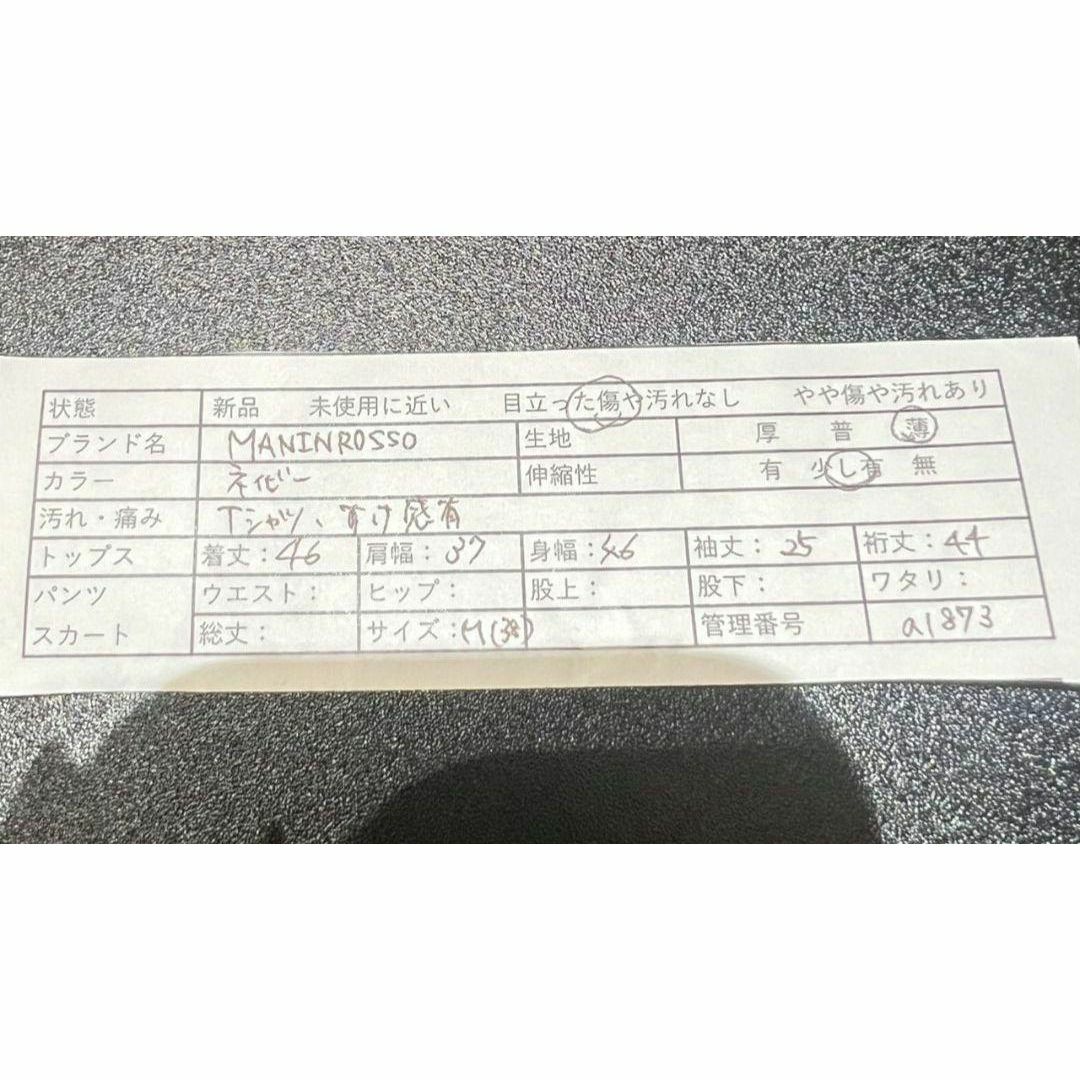 状態 新品 未使用に近い 目立った傷や汚れなし やや傷や汚れあり
ブランド名 MANINROSSO 生地 厚 普 薄
カラー ネイビー 伸縮性 有 少し有 無
汚れ・痛み Tシャツ、すけ感有
トップス 着丈:46 肩幅:37 身幅:46 袖丈:25 裄丈:44
パンツ ウエスト: ヒップ: 股上: 股下: ワタリ:
スカート 総丈: サイズ:M(38) 管理番号 a1873